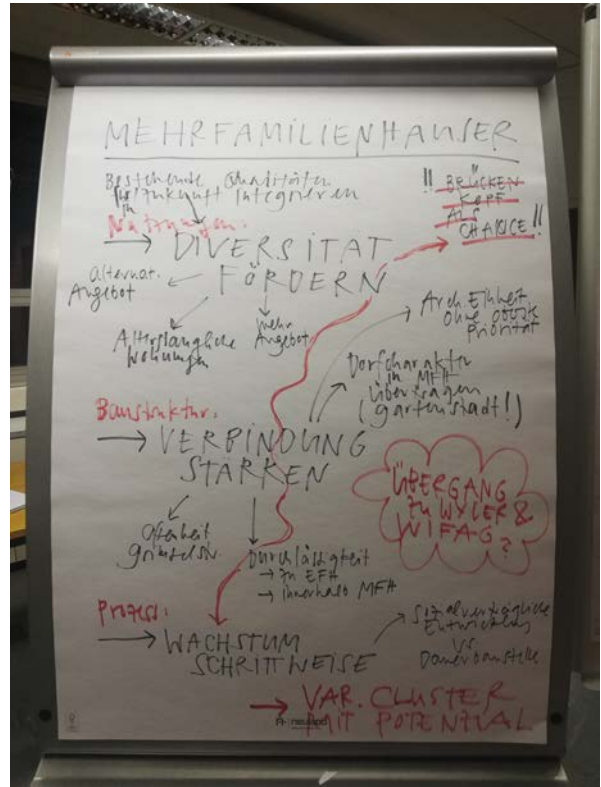 MEHRFAMILIENHÄUSER
Bestehende Qualitäten
in Zukunft integrieren
!! BRÜCKEN
KOPF
ALS
CHANCE!!
Nutzungen:
→ DIVERSITÄT
FÖRDERN
alternat.
Angebot
Alterstaugliche
Wohnungen
mehr
Angebot
Arch. Einheit
ohne
Priorität
Dorfcharakter
in MFH
übertragen
(Gartenstadt!)
Baustruktur:
→ VERBINDUNG
STÄRKEN
ÜBERGANG
ZU WYLER &
WIFAG
?
Offenheit
Durchlässigkeit
→ zu EFH
→ innerhalb MFH
Prozess:
→ WACHSTUM
SCHRITTWEISE
Sozialverträgliche
Entwicklung
VS
Dauerbaustelle
→ VAR. CLUSTER
MIT POTENTIAL
neuland